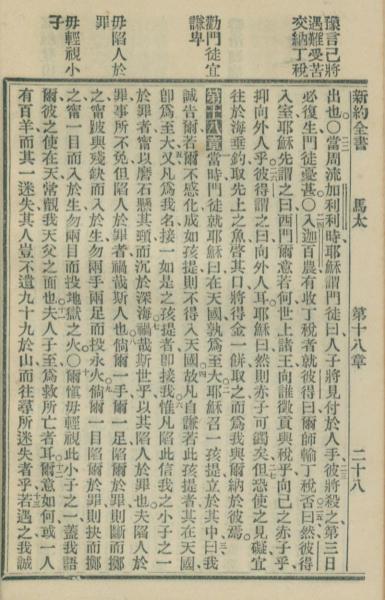 豫言己將
遇難受苦
交納丁稅
勸門徒宜
謙卑
毋陷人於
罪
毋輕視小
子
新約全書 馬太 第十八章 二十八
出也○當周流加利利時耶穌謂門徒曰人子將見付於人彼將殺之第三日
必復生門徒憂甚○入迦百農有收丁稅者就彼得曰爾師輸丁稅否曰然彼得
入室耶穌先謂之曰西門爾意若何世上諸王向誰徵貢與稅乎向己之赤子乎
抑向外人乎彼得謂之曰向外人耳耶穌曰然則赤子可蠲矣但恐使之見礙宜
往於海垂釣取先上之魚啓其口將得金一餅取之而為我與爾納於彼焉
第十八章當時門徒就耶穌曰在天國孰爲至大耶穌召一孩提立於其中曰我
誠告爾若爾不感化成如孩提則不得入天國故凡自謙若此孩提者其在天國
卽爲至大又凡爲我名接一如是之孩提者卽接我惟凡陷此信我之小子之一
於罪者甯以磨石懸其頸而沉於深海禍哉斯世乎以其陷人於罪也夫陷人於
罪事所不免但陷人於罪者禍哉斯人也倘爾一手爾一足陷爾於罪則斷而擲
之甯跛與殘缺而入於生勿兩手兩足而投永火倘爾一目陷爾於罪則抉而擲
之甯一目而入於生勿兩目而投地獄之火○爾愼毋輕視此小子之一蓋我語
爾彼之使在天常覩我天父之面也夫人子至爲救所亡者耳爾意如何或一人
有百羊而其一迷失其人豈不遺九十九於山而往尋所迷失者乎若遇之我誠